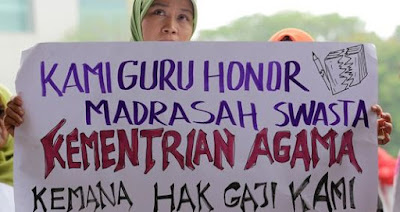 KAMI GURU HONOR
MADRASAH SWASTA
KEMENTRIAN AGAMA
KEMANA HAK GAJI KAMI